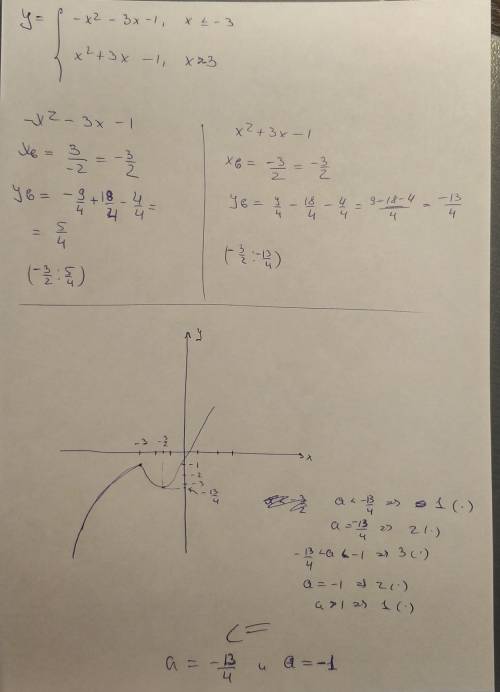 y = { -x² - 3x - 1, x ≤ -3
x² + 3x - 1, x > 3
-x² - 3x - 1
xв = 3/-2 = -3/2
yв = -9/4 + 18/4 - 4/4 =
= 5/4
(-3/2 ; 5/4)
x² + 3x - 1
xв = -3/2 = -3/2
yв = 9/4 - 18/4 - 4/4 = 9-18-4/4 = -13/4
(-3/2 ; -13/4)
y
-3 -3/2
x
-1
-2
-3
-13/4
a < -13/4 => 1 (·)
a = -13/4 => 2 (·)
-13/4 < a < -1 => 3 (·)
a = -1 => 2 (·)
a > 1 => 1 (·)
a = -13/4 и a = -1